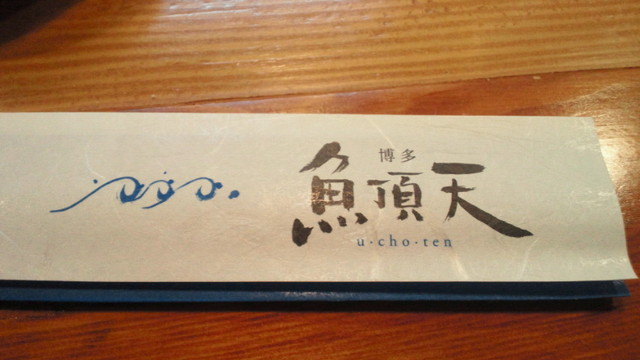 博多
魚頂天
u·cho·ten